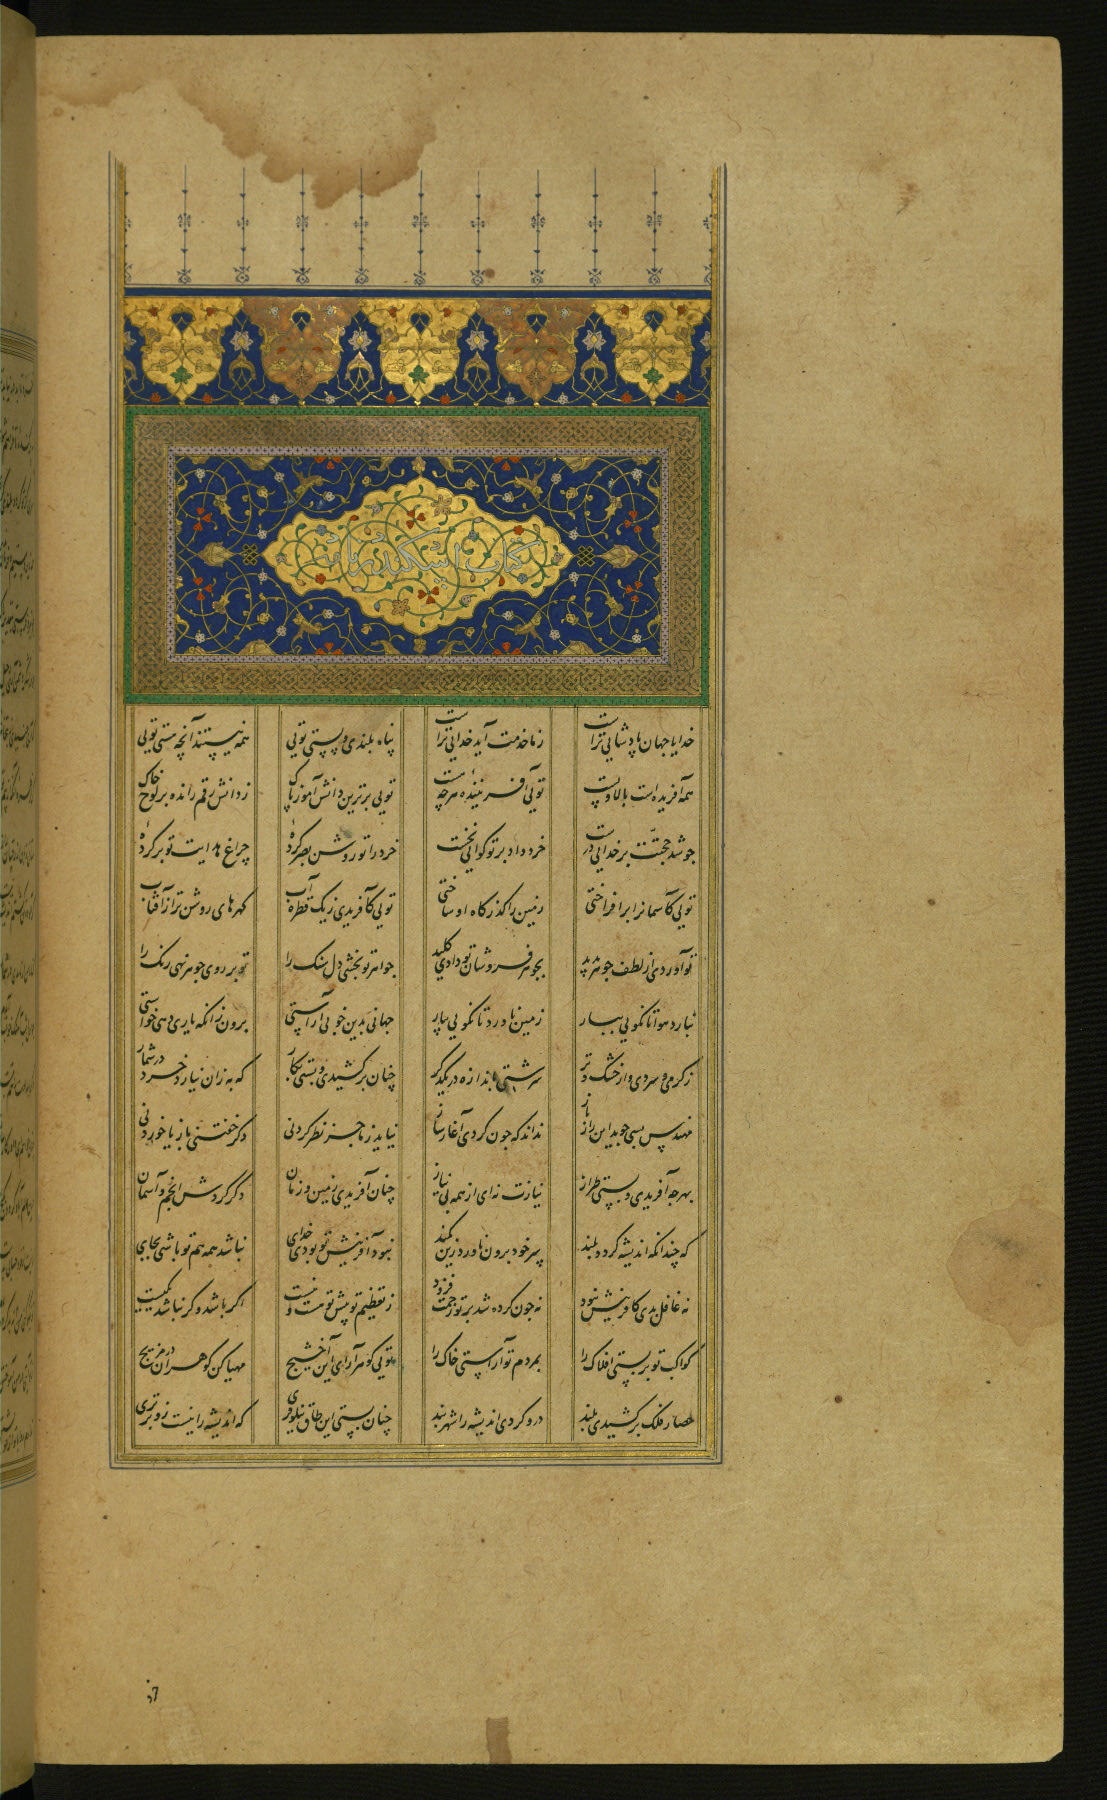 کتاب اسکندرنامه
خدایا جهان پادشایی تراست زما خدمت آید خدایی تراست پناه بلندی و پستی تویی همه نیستند آنچه هستی تویی
همه آفریدست بالا و پست تویی آفریننده هرچه هست تویی برترین دانش آموز پاک ز دانش رقم رانده بر لوح خاک
چو شد حجتت بر خدایی درست خرد داد بر تو گوایی نخست خرد را تو روشن بصر کردهٔ چراغ هدایت تو بر کردهٔ
تویی کآسمانرا برافراختی زمین را گذرگاه او ساختی تویی کآفریدی ز یک قطره آب گهرهای روشن‌تر از آفتاب
تو آوردی از لطف جوهر پدید بجوهرفروشان تو دادی کلید جواهر تو بخشی دل سنک را تو بر روی جوهر نهی رنک را
نبارد هوا تا نکویی ببار زمین ناورد تا نکویی بیار جهانی بدین خوبی آراستی برون زانکه یاری‌دهی خواستی
ز کرمی و سردی و از خشک و تر سرشتی باندازه در یکدکر چنان برکشیدی و بستی نکار که به زان نیارد خرد در شمار
مهندس بسی جوید این راز باز نداند که چون کردی آغاز ساز نیاید ز ما جز نظر کردنی دکر خفتنی باز یا خوردنی
بهرچه آفریدی و بستی طراز نیازت نه‌ای از همه بی‌نیاز چنان آفریدی زمین و زمان دکر کردش انجم و آسمان
که چندانکه اندیشه کردد بلند سر خود برون ناورد زین کمند نبود آفرینش تو بودی خدای نباشد همه هم تو باشی بجای
نه غافل بدی کافرینش نبود نه چون کرده شد بر تو زحمت فزود ز تعظیم تو پیش تو هست و نیست اگر باشد و کر نباشد یکیست
کواکب تو بر بستی افلاک را بمردم تو آراستی خاک را تویی کوهرآرای این آخشیج مهیا کن کوهران در مزیج
حصار فلک برکشیدی بلند درو کردی اندیشه را شهربند چنان بستی این طاق نیلوفری که اندیشه را نیست زو برتری